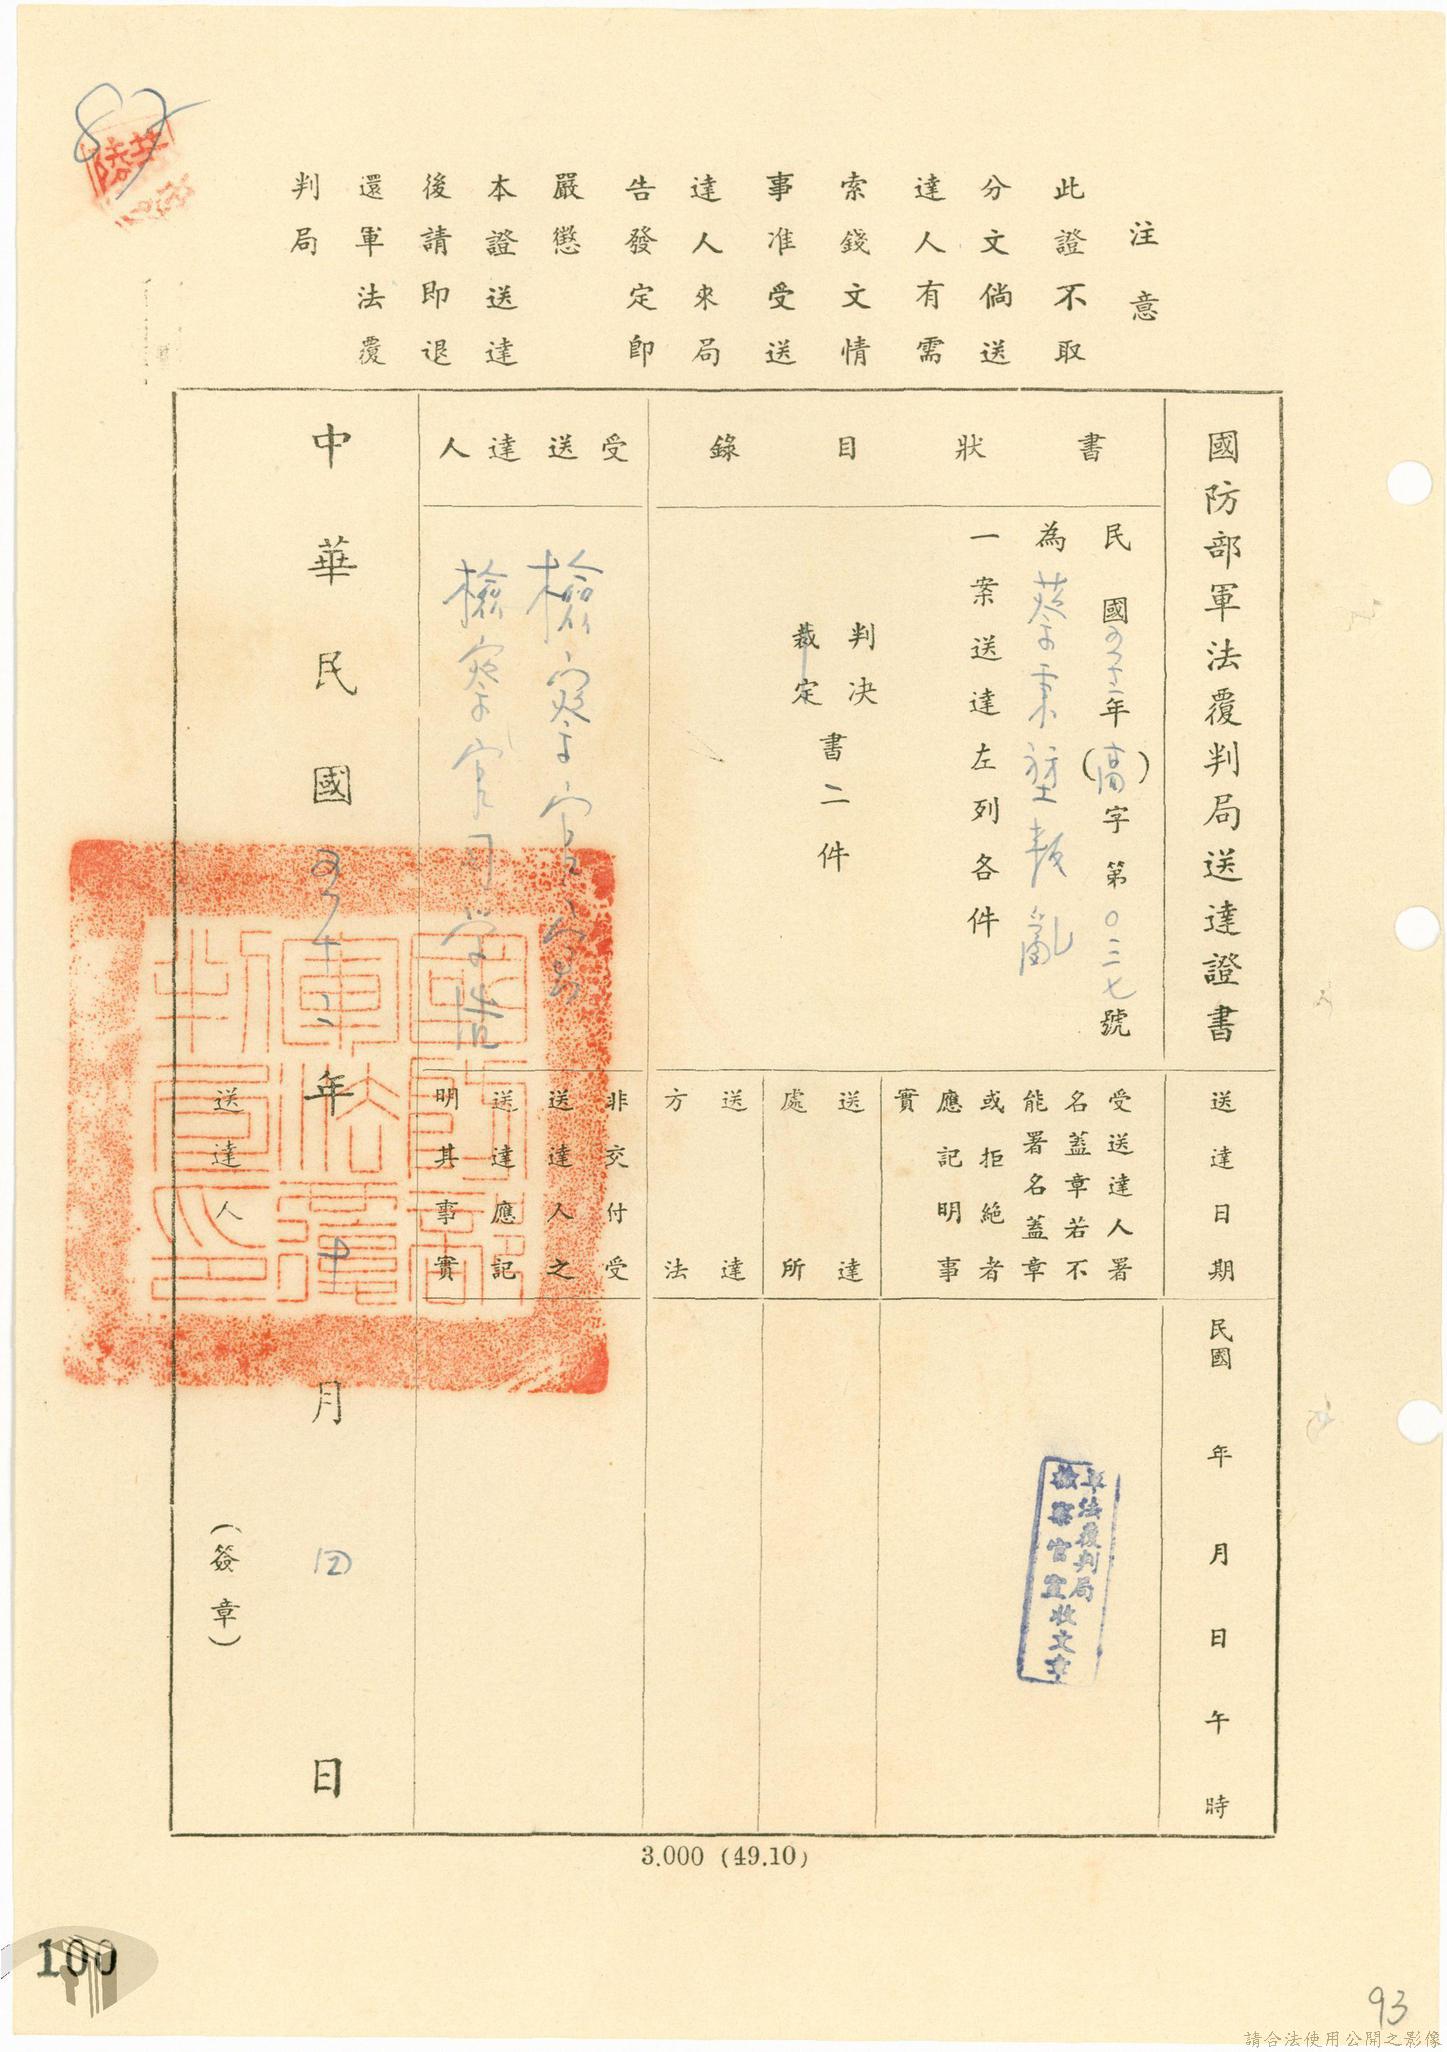 87
注意
此證不取
分文倘送
達人有需
索錢文情
事准受送
達人來局
告發定即
嚴懲
本證送達
後請即退
還軍法覆
判局
國防部軍法覆判局送達證書
書狀目錄
民國五十二年(高)字第〇三七號
為蔡秉堃叛亂
一案送達左列各件
判決
裁定
書二件
受送達人
檢察官
檢察官
中華民國五十二年 月四日
送達日期
民國 年 月 日 午 時
受送達人署
名蓋章若不
能署名蓋章
或拒絕者
應記明事
實
軍法覆判局
檢察官室收文章
送達
處所
送達
方法
非交付受
送達人之
送達應記
明其事實
送達人
(簽章)
國防部
軍法覆
判局印
3.000 (49.10)
100
93
請合法使用公開之影像